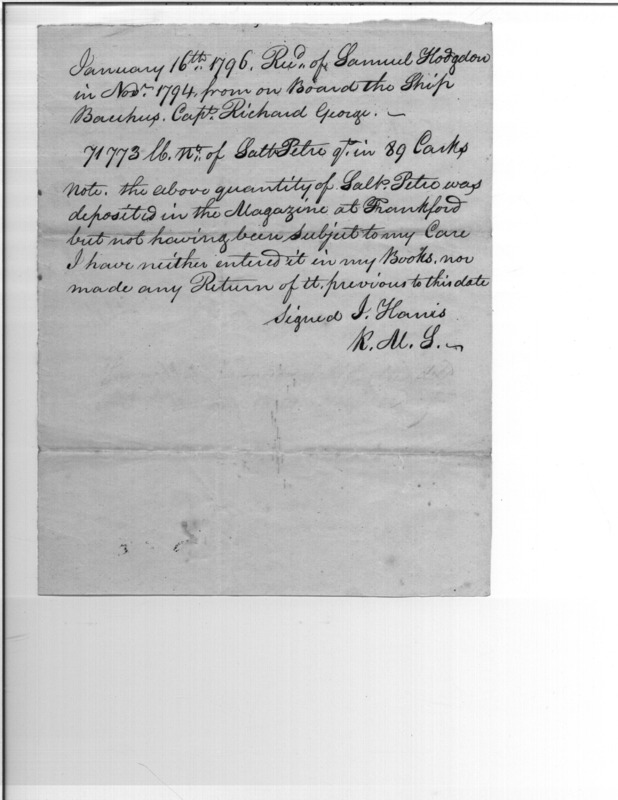 January 16th. 1796. Recd. of Samuel Hodgdon
in Novr. 1794, from on Board the Ship
Bacchus. Capt. Richard George. ~
71773 lb. Nt. of Salt Petre qt. in 89 Casks
Note. the above quantity of Salt Petre was
deposited in the Magazine at Frankford
but not having been subject to my Care
I have neither entered it in my Books, nor
made any Return of it. previous to this date
signed J. Harris
K. M. S. ~